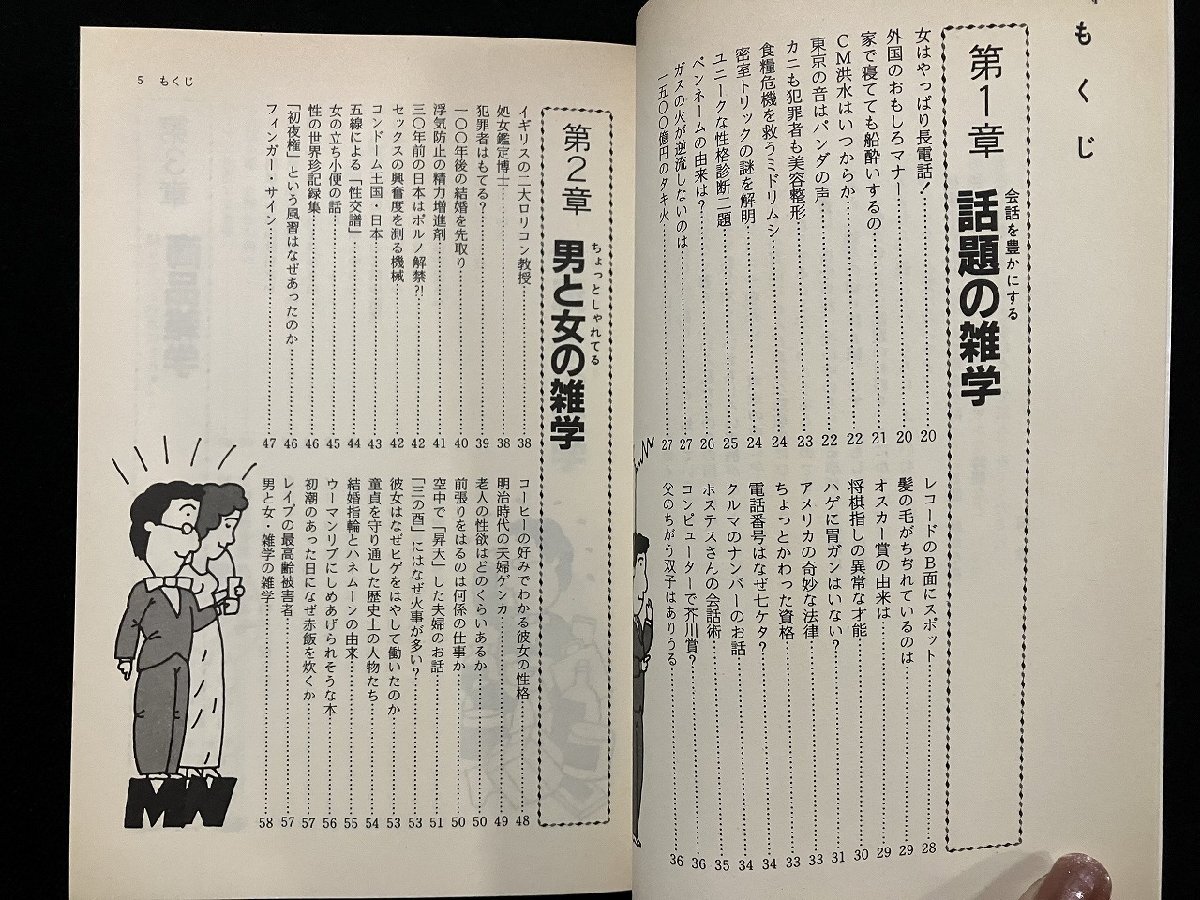 もくじ
第1章
会話を豊かにする
話題の雑学
女はやっぱり長電話!……20
外国のおもしろマナー……20
家で寝てても船酔いするの……21
CM洪水はいつからか……22
東京の音はパンダの声……22
カニも犯罪者も美容整形……23
食糧危機を救うミドリムシ……24
密室トリックの謎を解明……24
ユニークな性格診断二題……25
ペンネームの由来は?……26
ガスの火が逆流しないのは……27
一五〇〇億円のタキ火……27
レコードのB面にスポット……28
髪の毛がちぢれているのは……29
オスカー賞の由来は……29
将棋指しの異常な才能……30
ハゲに胃ガンはいない?……31
アメリカの奇妙な法律……33
ちょっとかわった資格……33
電話番号はなぜ七ケタ?……34
クルマのナンバーのお話……34
ホステスさんの会話術……35
コンピューターで芥川賞?……36
父のちがう双子はありうる……36
5 もくじ
第2章
ちょっとしゃれてる
男と女の雑学
イギリスの二大ロリコン教授……38
処女鑑定博士……38
犯罪者はもてる?……39
一〇〇年後の結婚を先取り……40
浮気防止の精力増進剤……41
三〇年前の日本はポルノ解禁?!……42
セックスの興奮度を測る機械……42
コンドーム王国・日本……43
五線による「性交譜」……44
女の立ち小便の話……45
性の世界珍記録集……46
「初夜権」という風習はなぜあったのか……46
フィンガー・サイン……47
コーヒーの好みでわかる彼女の性格……48
明治時代の夫婦ゲンカ……49
老人の性欲はどのくらいあるか……50
前張りをはるのは何係の仕事か……50
空中で「昇天」した夫婦のお話……51
「三の酉」にはなぜ火事が多い?……53
彼女はなぜヒゲをはやして働いたのか……53
童貞を守り通した歴史上の人物たち……54
結婚指輪とハネムーンの由来……55
ウーマンリブにしめあげられそうな本……56
初潮のあった日になぜ赤飯を炊くか……57
レイプの最高齢被害者……57
男と女・雑学の雑学……58
MW